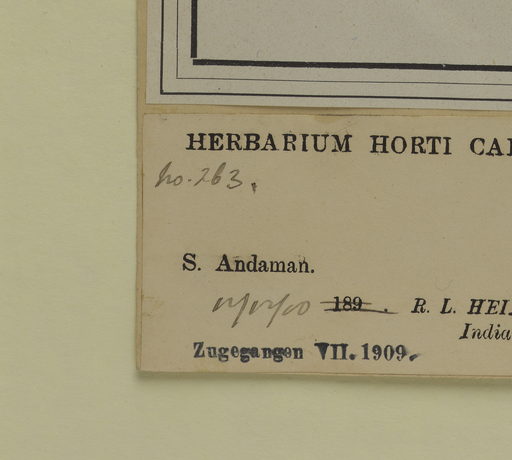 HERBARIUM HORTI CAL
No. 263.
S. Andaman.
189 . R. L. HEI
India
Zugegangen VII. 1909.